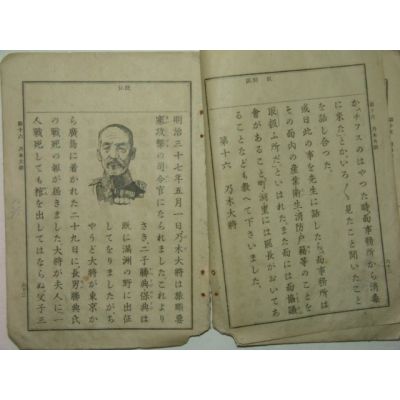 か、チブスのはやつた時面事務所から消毒
に来たとかいろ〳〵見たこと聞いたこと
を話し合つた。
或日此の事を先生に話したら、面事務所は
その面内の産業衛生消防戸籍等のことを
取扱ふ所だといはれた。また面には面協議
會があること、町・洞里には區長がおいてあ
ることなども教へて下さいました。
第十六 乃木大將
第十六 乃木大將
明治三十七年五月一日乃木大將は旅順要
塞攻撃の司令官になられましたこれより
さき、二子勝典保典は
既に満洲の野に出征
してをりましたがち
やうど大將が東京か
ら廣島に着かれた二十九日に長男勝典氏
の戰死の報が届きました。大將が夫人に一
人戰死しても棺を出してはならぬ父子三
第十六 乃木大將